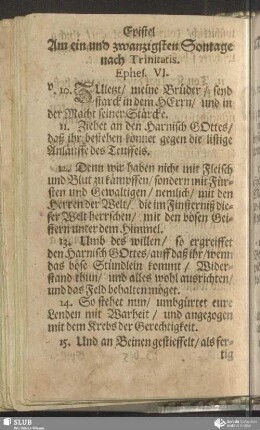 Epistel
Am ein und zwanzigsten Sontage
nach Trinitatis.
Ephes. VI.
v. 10. ZUletzt/ meine Brüder/ seyd
starck in dem HErrn/ und in
der Macht seiner Stärcke.
11. Ziehet an den Harnisch GOttes/
daß ihr bestehen konnet gegen die listige
Anläuffe des Teuffels.
12. Denn wir haben nicht mit Fleisch
und Blut zu kämpffen/ sondern mit Für-
sten und Gewaltigen/ nemlich/ mit den
Herren der Welt/ die im Finsterniß die-
ser Welt herrschen/ mit den bösen Gei-
stern unter dem Himmel.
13. Umb des willen/ so ergreiffet
den Harnisch GOttes/ auff daß ihr/ wenn
das böse Stündlein kommt/ Wider-
stand thun/ und alles wohl ausrichten/
und das Feld behalten möget.
14. So stehet nun/ umbgürtet eure
Lenden mit Warheit/ und angezogen
mit dem Krebs der Gerechtigkeit.
15. Und an Beinen gestieffelt/ als fer-
tig
SLUB